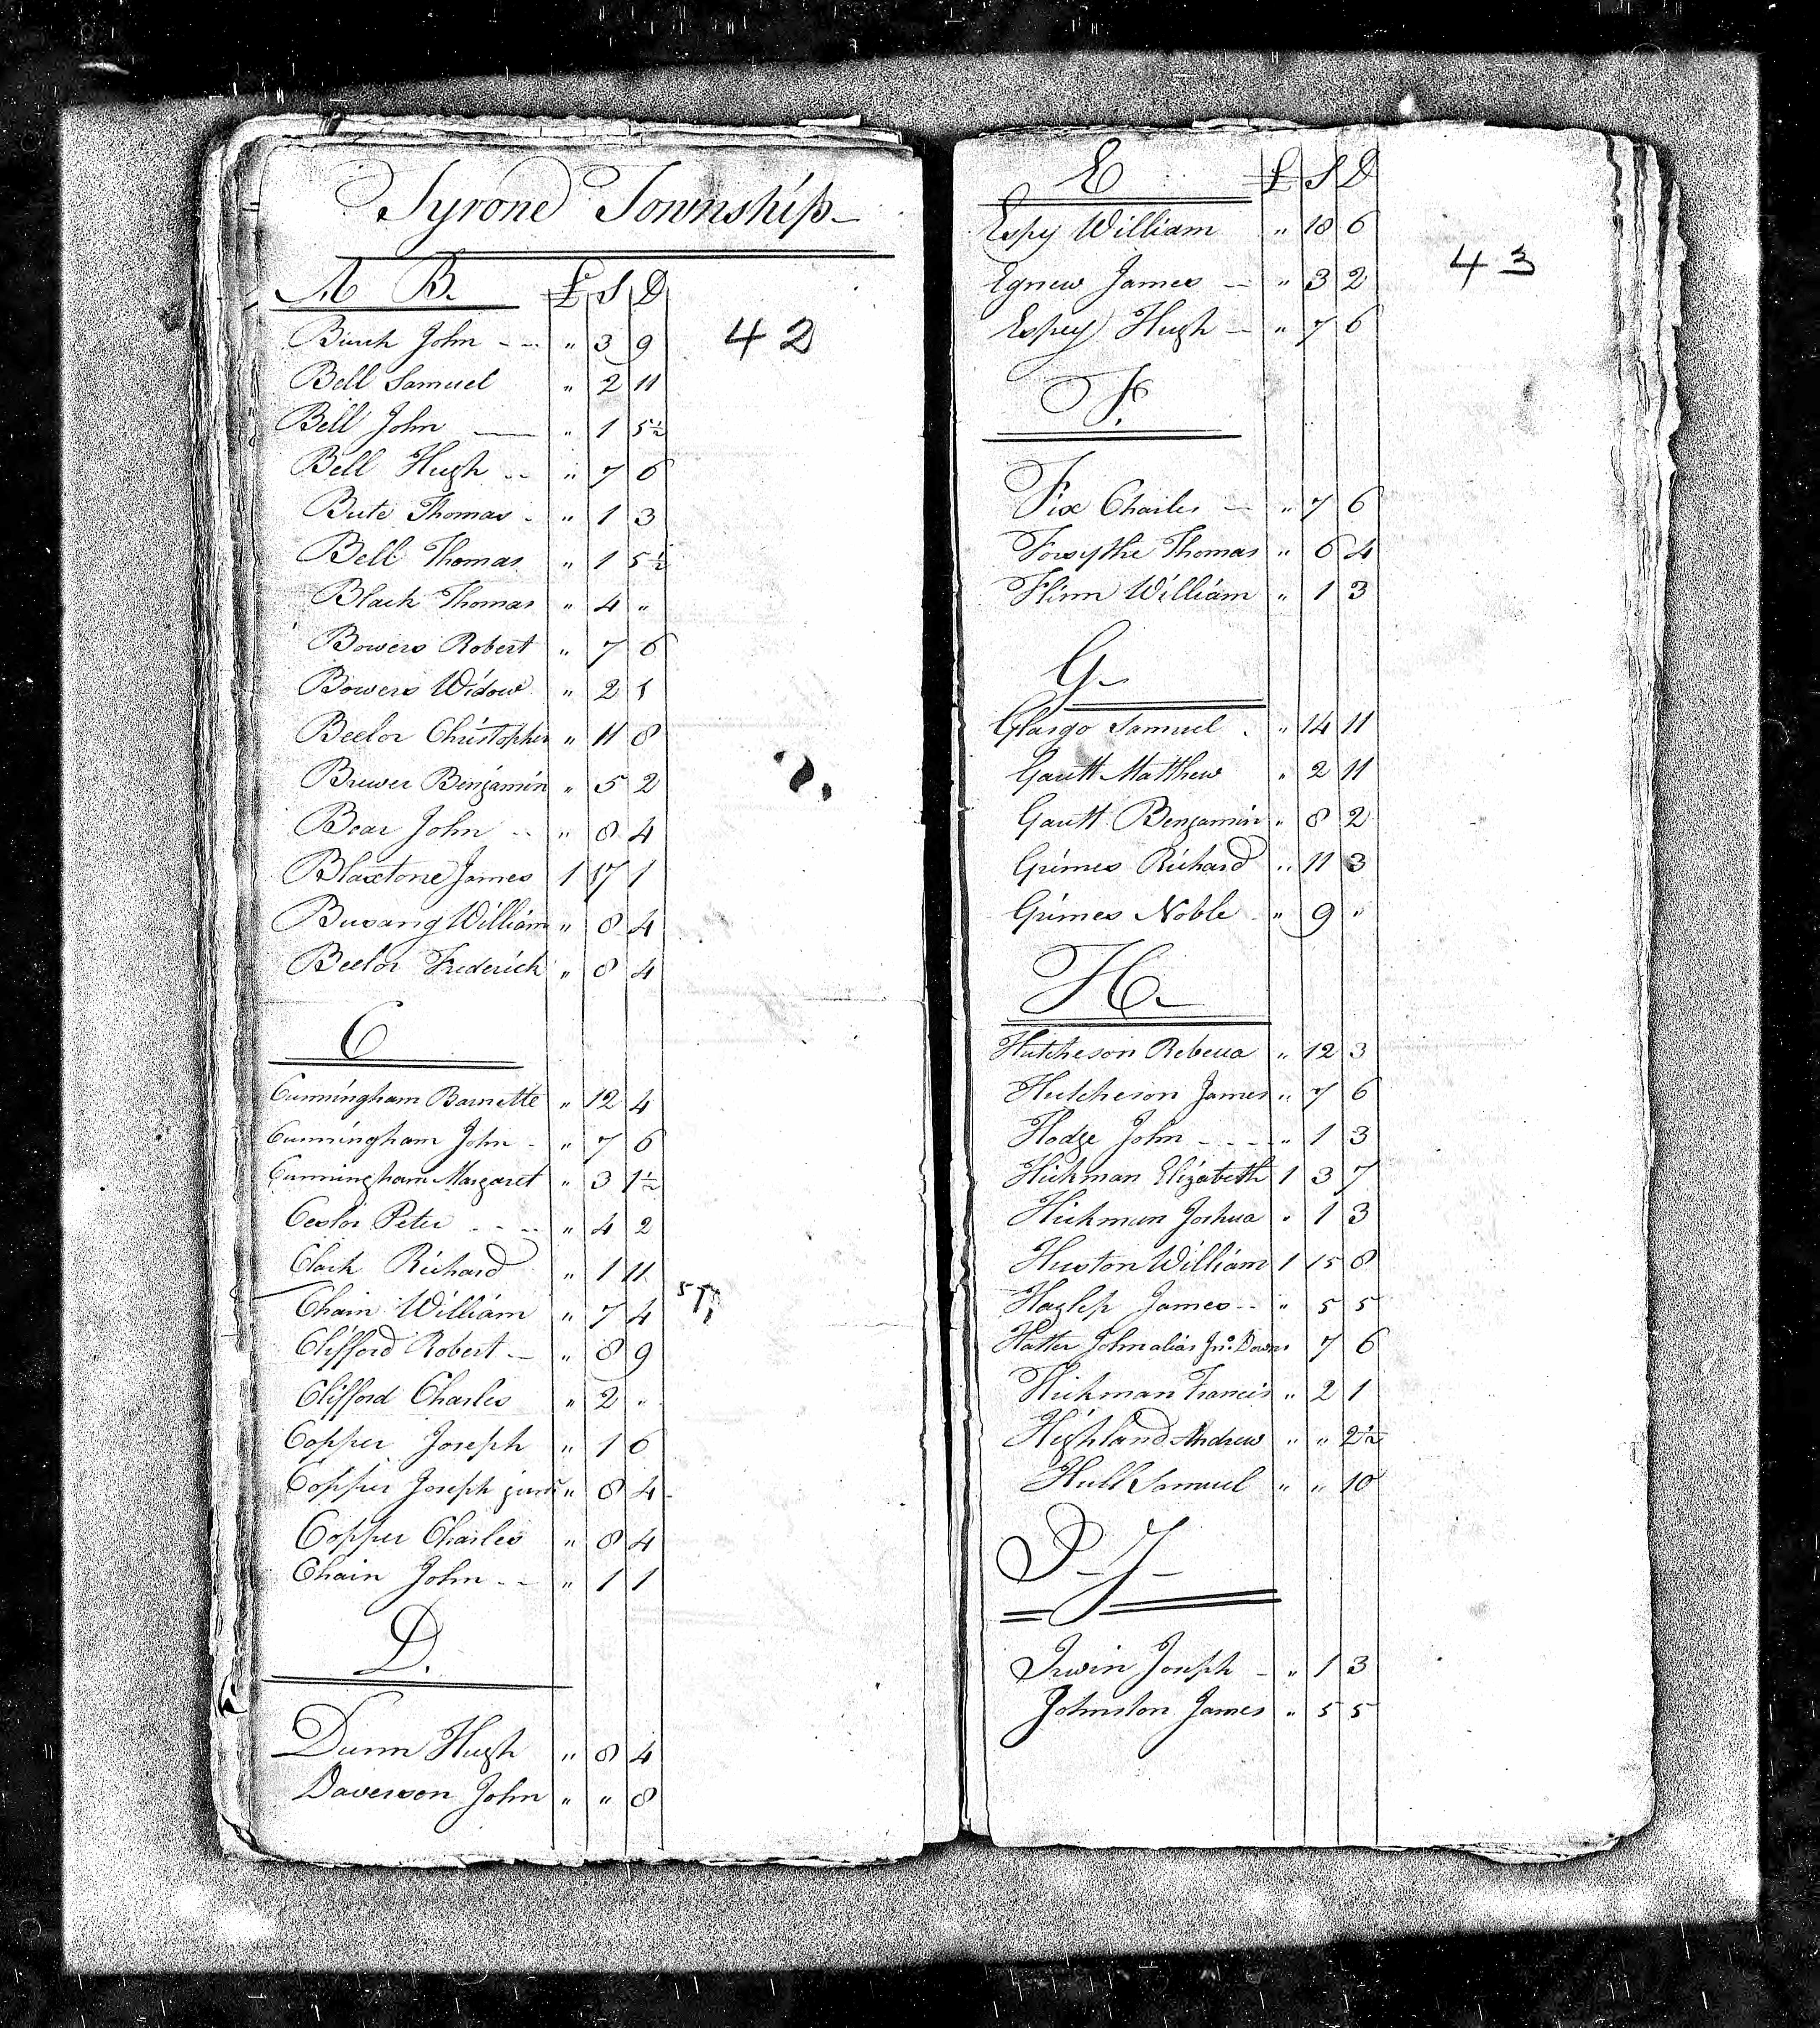 Tyrone Township
A B. £ S D
42
Burch John -- " 3 9
Bell Samuel " 2 11
Bell John — " 1 5½
Bell Hugh -- " 7 6
Bute Thomas - " 1 3
Bell Thomas " 1 5½
Black Thomas " 4 "
Bowers Robert " 7 6
Bowers Widow " 2 1
Beelor Christopher " 11 8
Brewer Benjamin " 5 2
Bear John -- " 8 4
Blaxtone James 1 17 1
Busang William " 8 4
Beelor Frederick " 8 4
C
Cunningham Barnette " 12 4
Cunningham John - " 7 6
Cunningham Margaret " 3 1½
Ceslor Peter - - -- " 4 2
Clark Richard " 1 11
Chain William " 7 4
Clifford Robert — " 8 9
Clifford Charles " 2 "
Copper Joseph " 1 6
Copper Joseph junr " 8 4
Copper Charles " 8 4
Chain John -- " 1 1
D.
Dunn Hugh " 8 4
Daverson John " " 8
E £ S D
43
Espy William " 18 6
Egnew James — " 3 2
Espey Hugh — " 7 6
F.
Fix Charles — " 7 6
Forsythe Thomas " 6 4
Flinn William " 1 3
G-
Glasgo Samuel . " 14 11
Gautt Matthew " 2 11
Gautt Benjamin " 8 2
Grimes Richard " 11 3
Grimes Noble " 9 "
H-
Hutcheson Rebecca " 12 3
Hutcheson James " 7 6
Hodge John - - - " 1 3
Hickman Elizabeth 1 3 7
Hickman Joshua " 1 3
Huston William 1 15 8
Hazlep James -- " 5 5
Hatter John alias Jno. Downs 7 6
Hickman Francis " 2 1
Highland Andrew " " 2½
Hull Samuel " " 10
I-J-
Irwin Joseph - " 1 3
Johnston James " 5 5